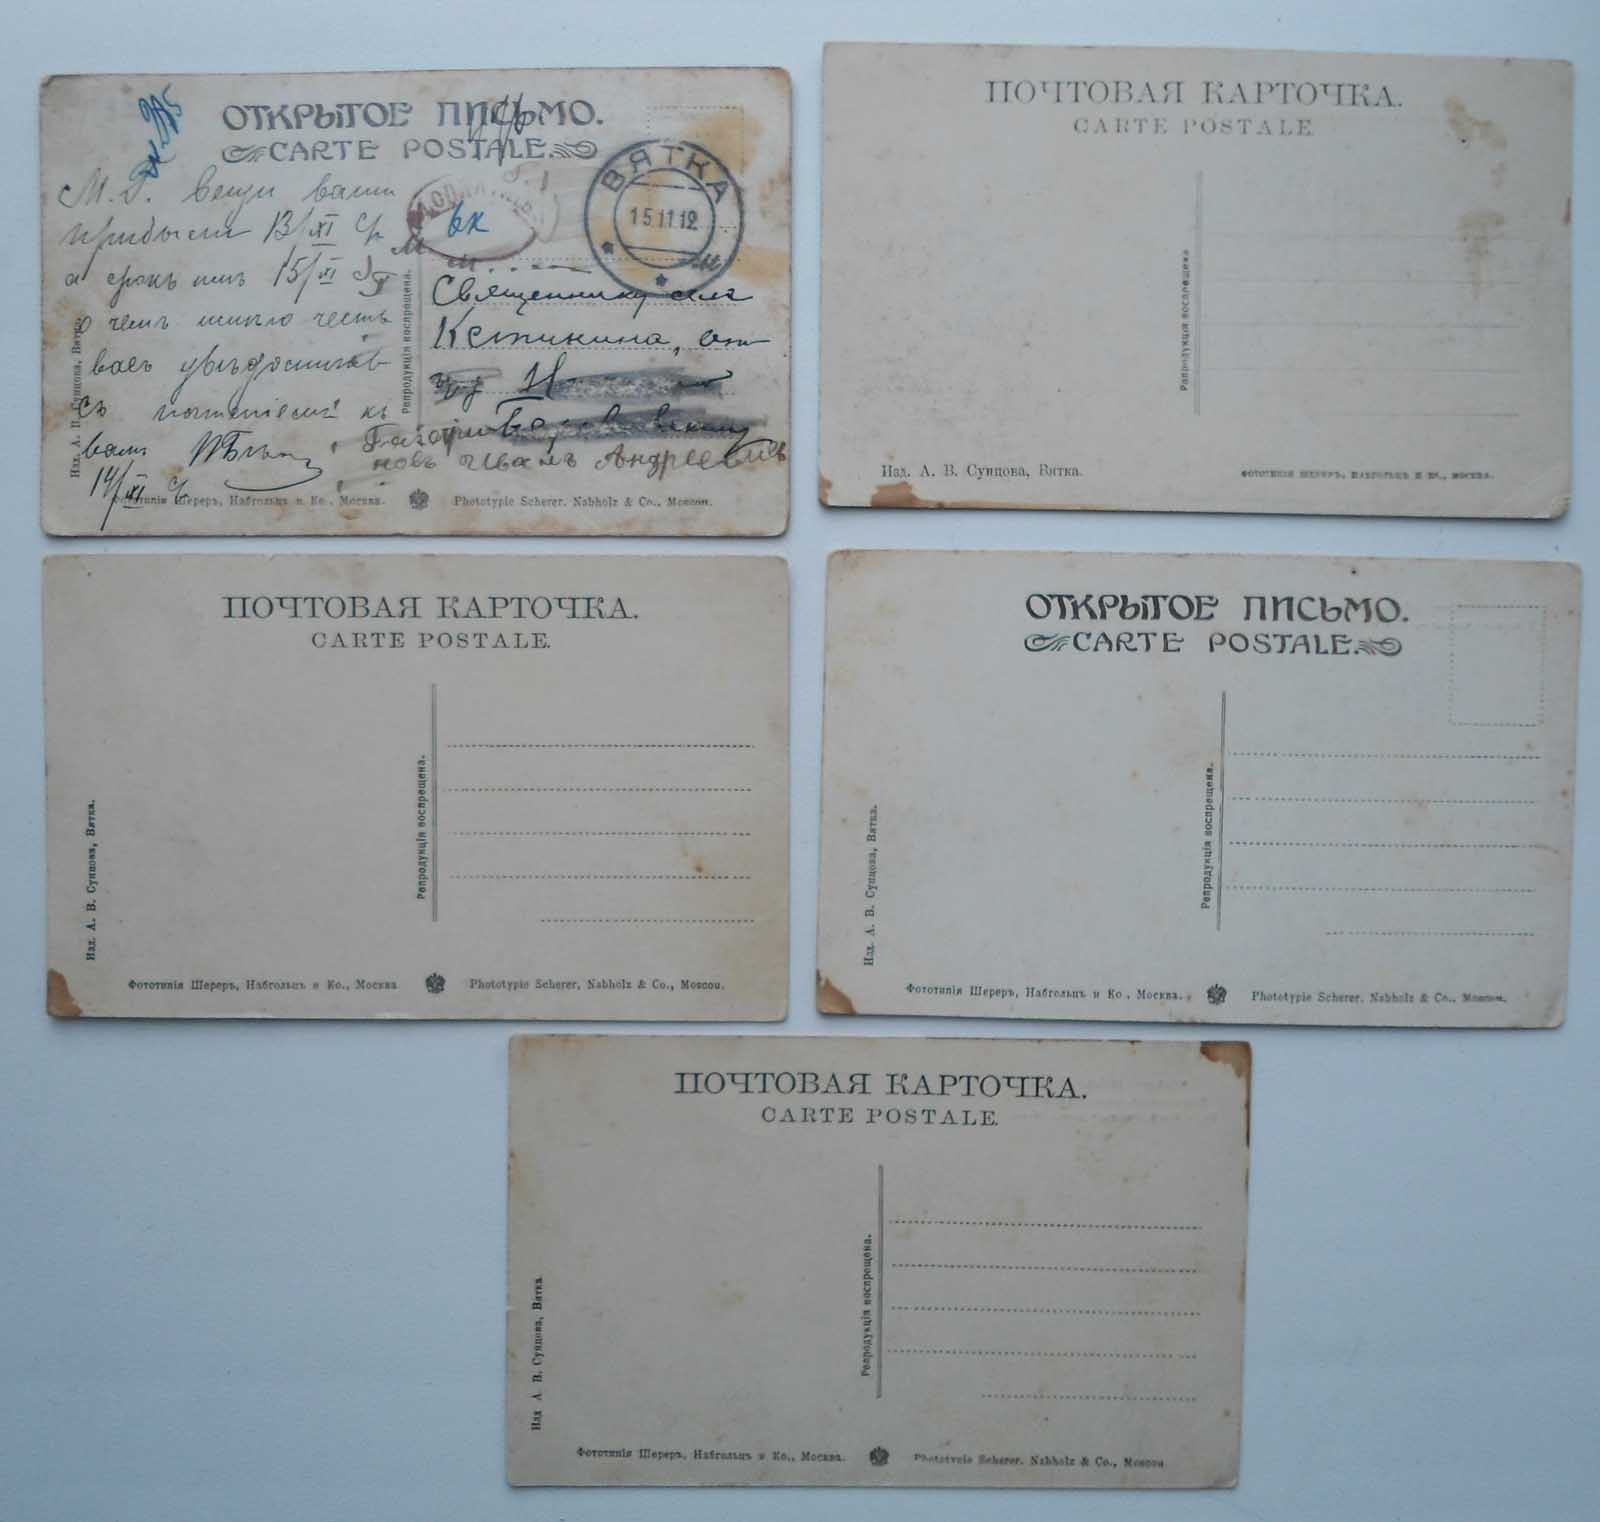 ОТКРЫТОЕ ПИСЬМО.
CARTE POSTALE.
М. Г. Вещи ваши
прибыли 13/XI
а срокъ имъ 15/XI
о чемъ имѣю честь
васъ
Съ почтеніемъ къ
вамъ
14/XI
ВЯТКА
15 11 12
вх
Священнику села
Кстинина,
новъ Иванъ Андреевичъ
Репродукція воспрещена.
Изд. А. В. Сунцова, Вятка.
Фототипія Шереръ, Набгольцъ и Ко., Москва.
Phototypie Scherer, Nabholz & Co., Moscou.
ПОЧТОВАЯ КАРТОЧКА.
CARTE POSTALE.
Репродукція воспрещена.
Изд. А. В. Сунцова, Вятка.
Фототипія Шереръ, Набгольцъ и Ко., Москва.
ПОЧТОВАЯ КАРТОЧКА.
CARTE POSTALE.
Репродукція воспрещена.
Изд. А. В. Сунцова, Вятка.
Фототипія Шереръ, Набгольцъ и Ко., Москва
Phototypie Scherer, Nabholz & Co., Moscou.
ОТКРЫТОЕ ПИСЬМО.
CARTE POSTALE.
Репродукція воспрещена.
Изд. А. В. Сунцова, Вятка.
Фототипія Шереръ, Набгольцъ и Ко., Москва.
Phototypie Scherer, Nabholz & Co., Moscou.
ПОЧТОВАЯ КАРТОЧКА.
CARTE POSTALE.
Репродукція воспрещена.
Изд А. В. Сунцова, Вятка.
Фототипія Шереръ, Набгольцъ и Ко., Москва.
Phototypie Scherer, Nabholz & Co., Moscou